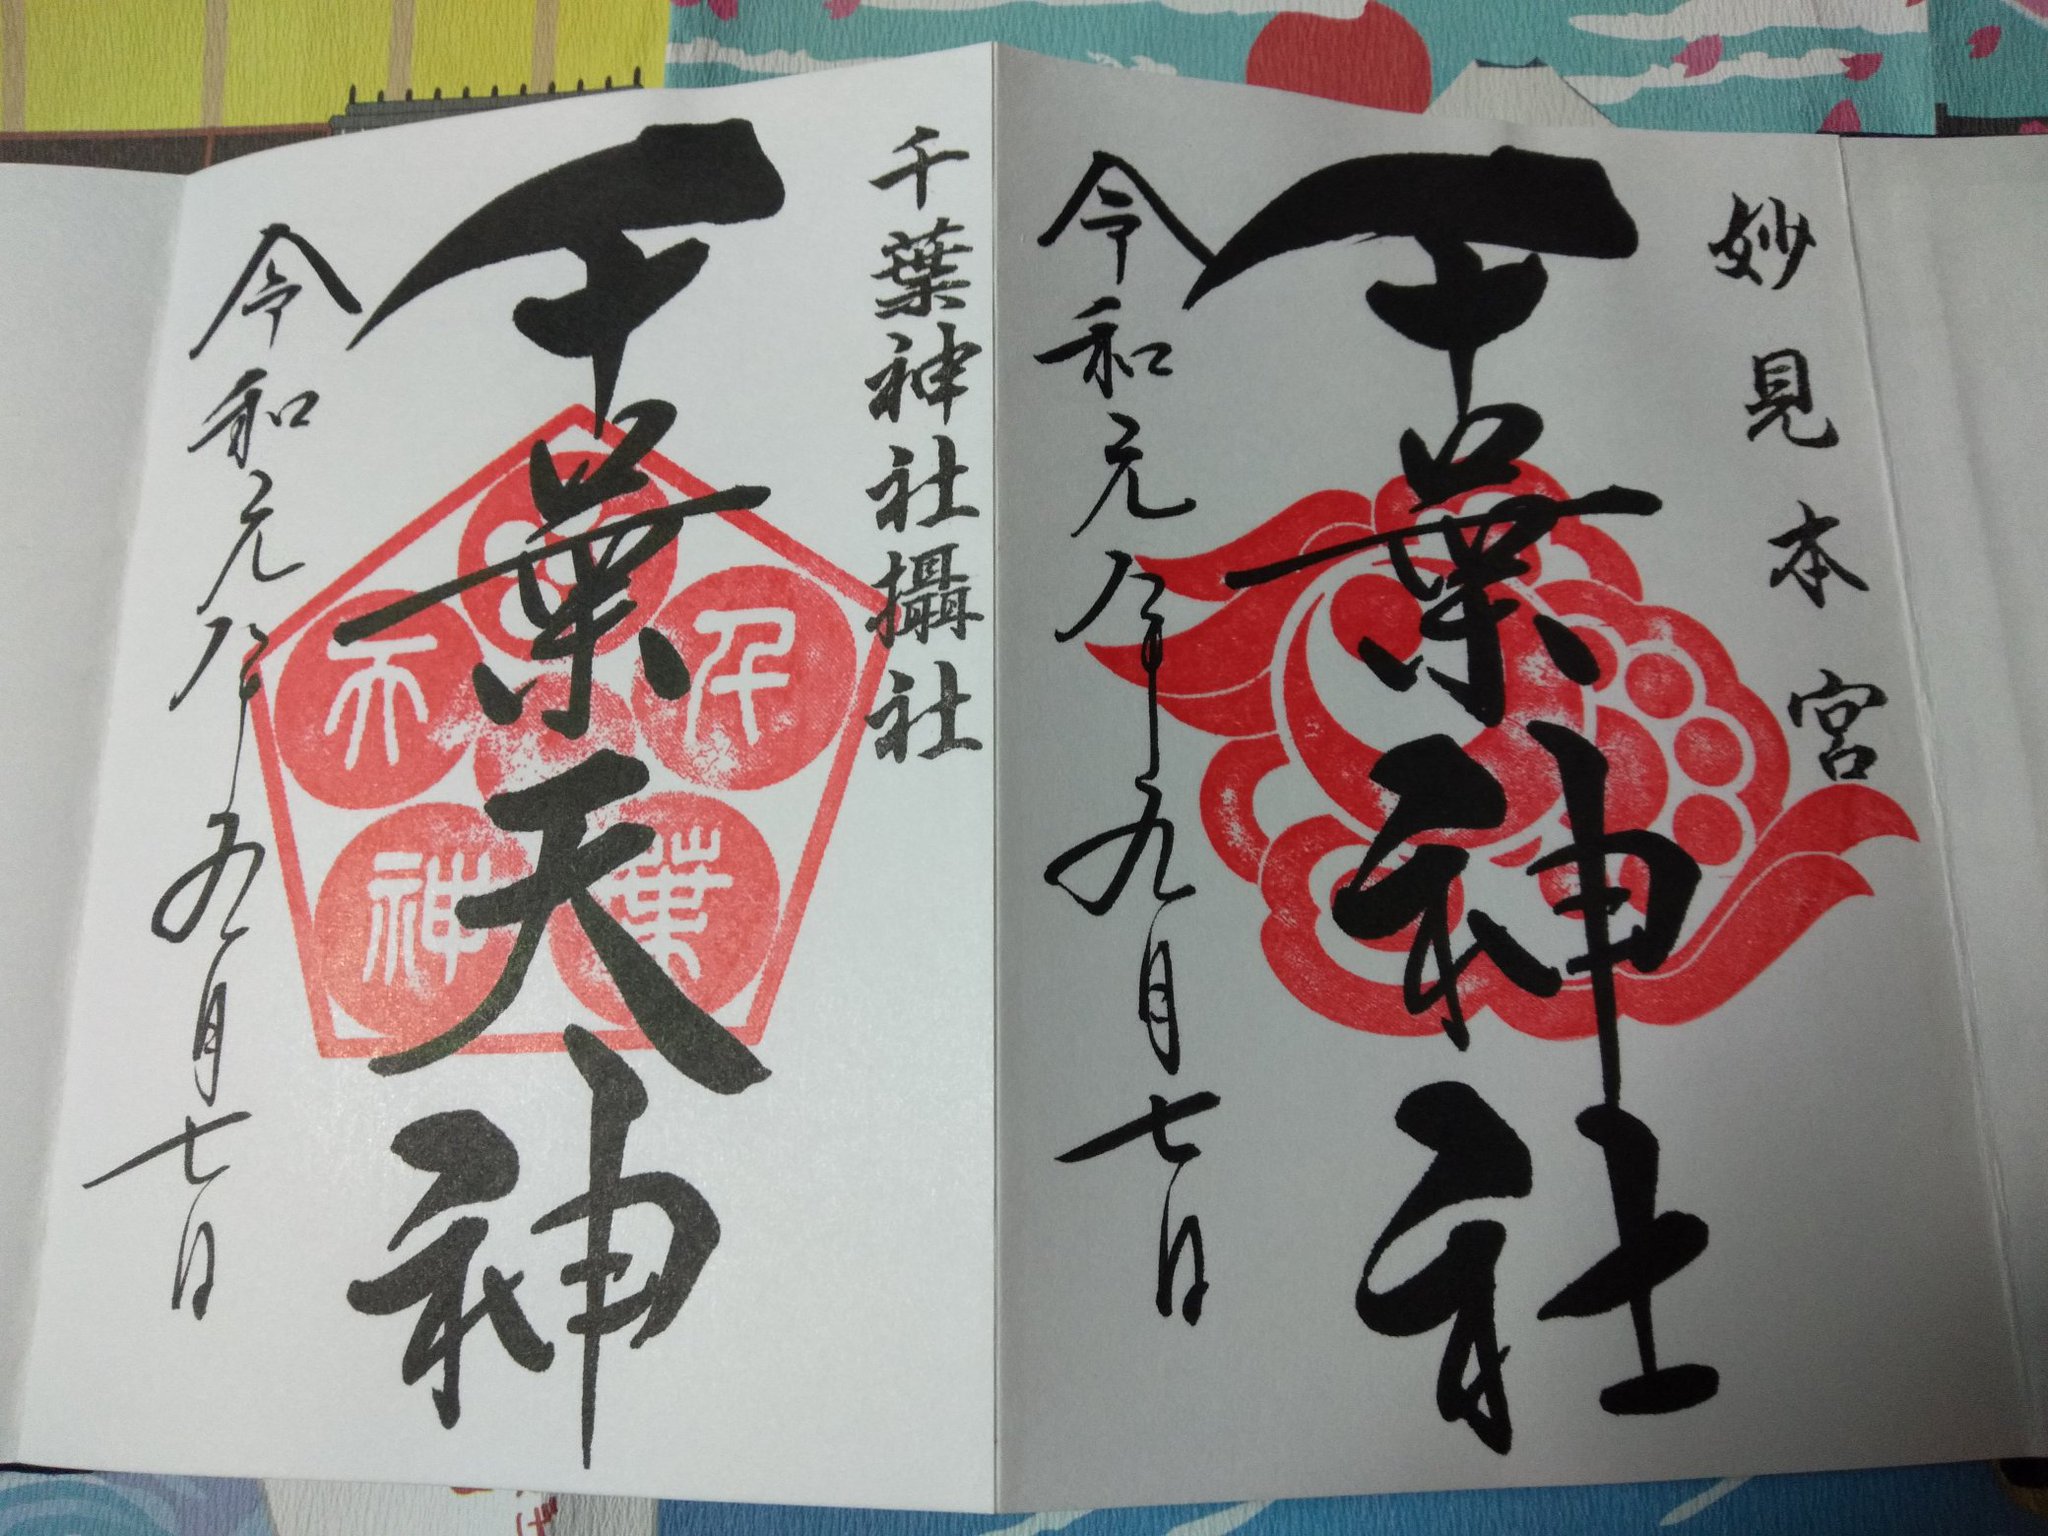 妙見本宮
千葉神社
令和元年九月七日
千葉神社攝社
千葉天神
令和元年九月七日
千葉天神